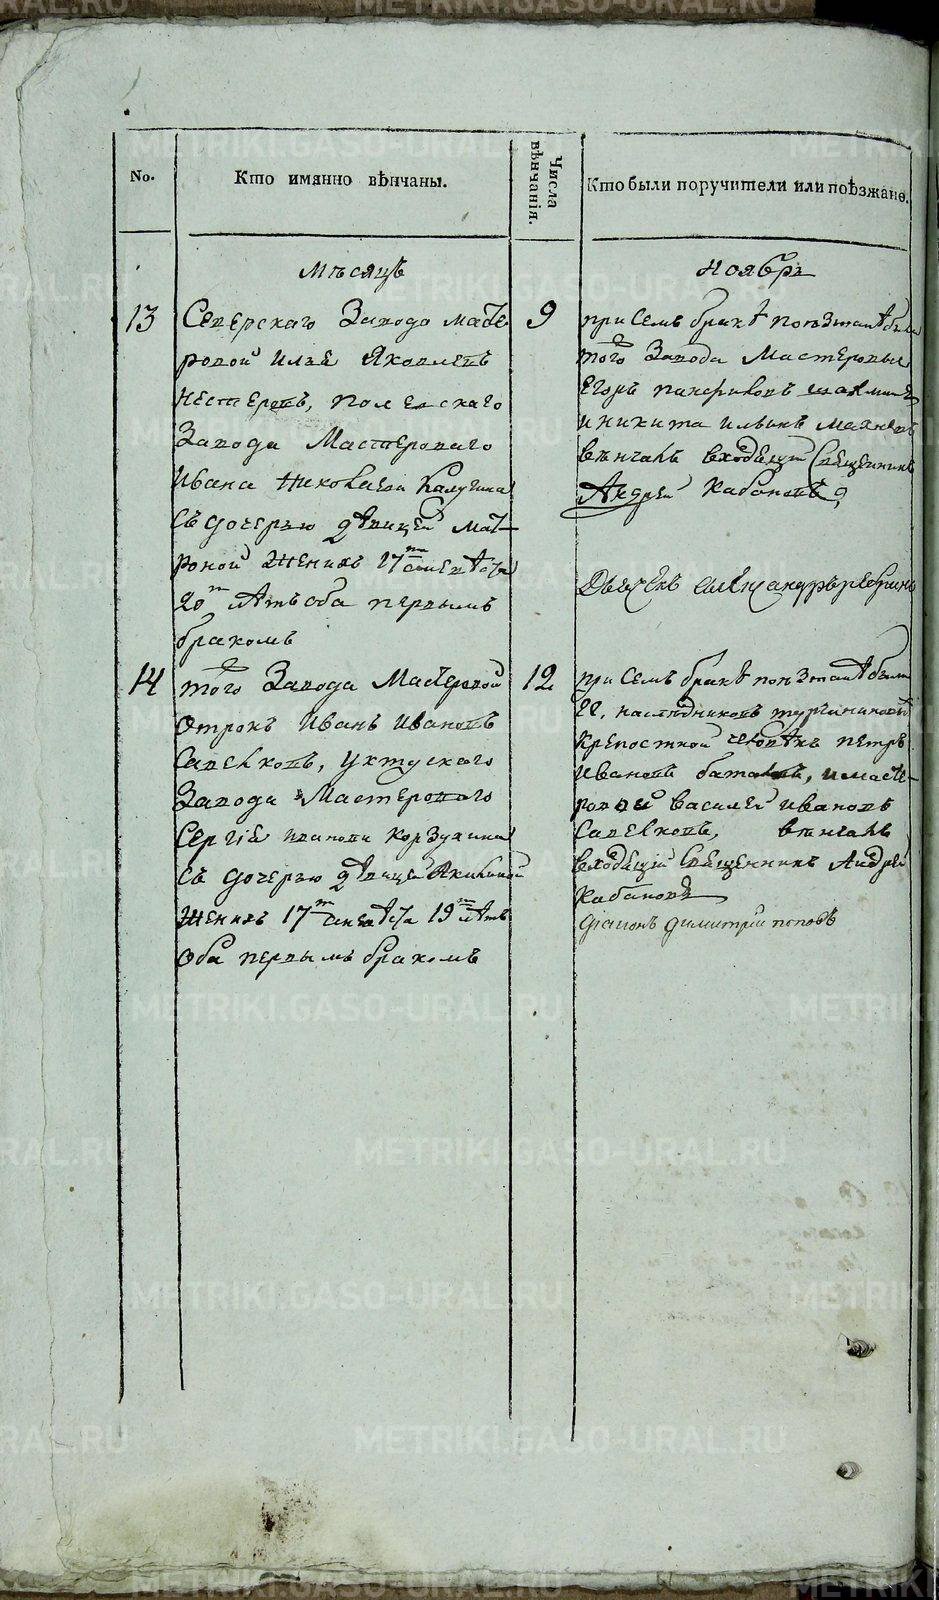 No.
Кто имянно вѣнчаны.
Числа вѣнчанія.
Кто были поручители или поѣзжане.
Мѣсяцъ
Ноябрь
13
Северскаго Завода масте
ровой Илье Яковлевъ
Нестеровъ, Полевскаго
Завода Мастероваго
Ивана Николаева Калугина
съ дочерью дѣвицей Мат
роной Женихъ 17 ти а невѣста
20 ти лѣтъ оба первымъ
бракомъ
9
при семъ бракѣ поезжанѣ были
того Завода Мастеровые
Егоръ Панфиловъ
и Никита Ильинъ
вѣнчалъ входящій Священникъ
Андрей Кабановъ
Дьячекъ Александръ
14
того Завода Мастеровой
отрокъ Иванъ Ивановъ
Савелковъ, Уктускаго
Завода Мастероваго
Сергіе Иванова Корзухина
съ дочерью дѣвицей Акилиной
Женихъ 17 ти а невѣста 19 ти лѣтъ
оба первымъ бракомъ
12
при семъ бракѣ поезжанѣ были
Ег, наслѣдниковъ Турчаниновыхъ
крепостной человѣкъ Петръ
Ивановъ и масте
ровой Василей Ивановъ
Савелковъ, вѣнчалъ
входящій Священникъ Андрей
Кабановъ
Діаконъ Димитрій Поповъ
METRIKI.GASO-URAL.RU